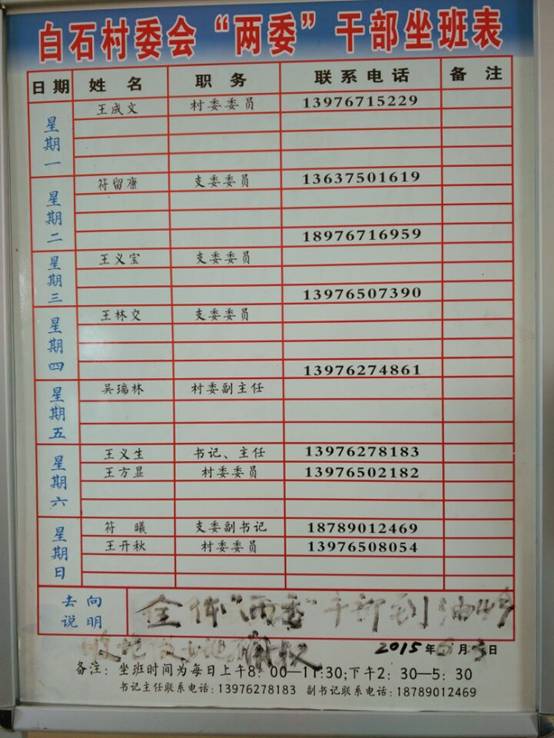 白石村委会“两委”干部坐班表
日期 姓名 职务 联系电话 备注
星期一 王成文 村委委员 13976715229
星期二 符留廉 支委委员 13637501619
18976716959
星期三 王义宝 支委委员
13976507390
星期四 王林交 支委委员
13976274861
星期五 吴瑞林 村委副主任
星期六 王义生 书记、主任 13976278183
王方显 村委委员 13976502182
星期日 符曦 支委副书记 18789012469
王开秋 村委委员 13976508054
去向说明 全体“两委”干部到
2015年 月 日
备注:坐班时间为每日上午8:00—11:30;下午2:30—5:30
书记主任联系电话:13976278183 副书记联系电话:18789012469